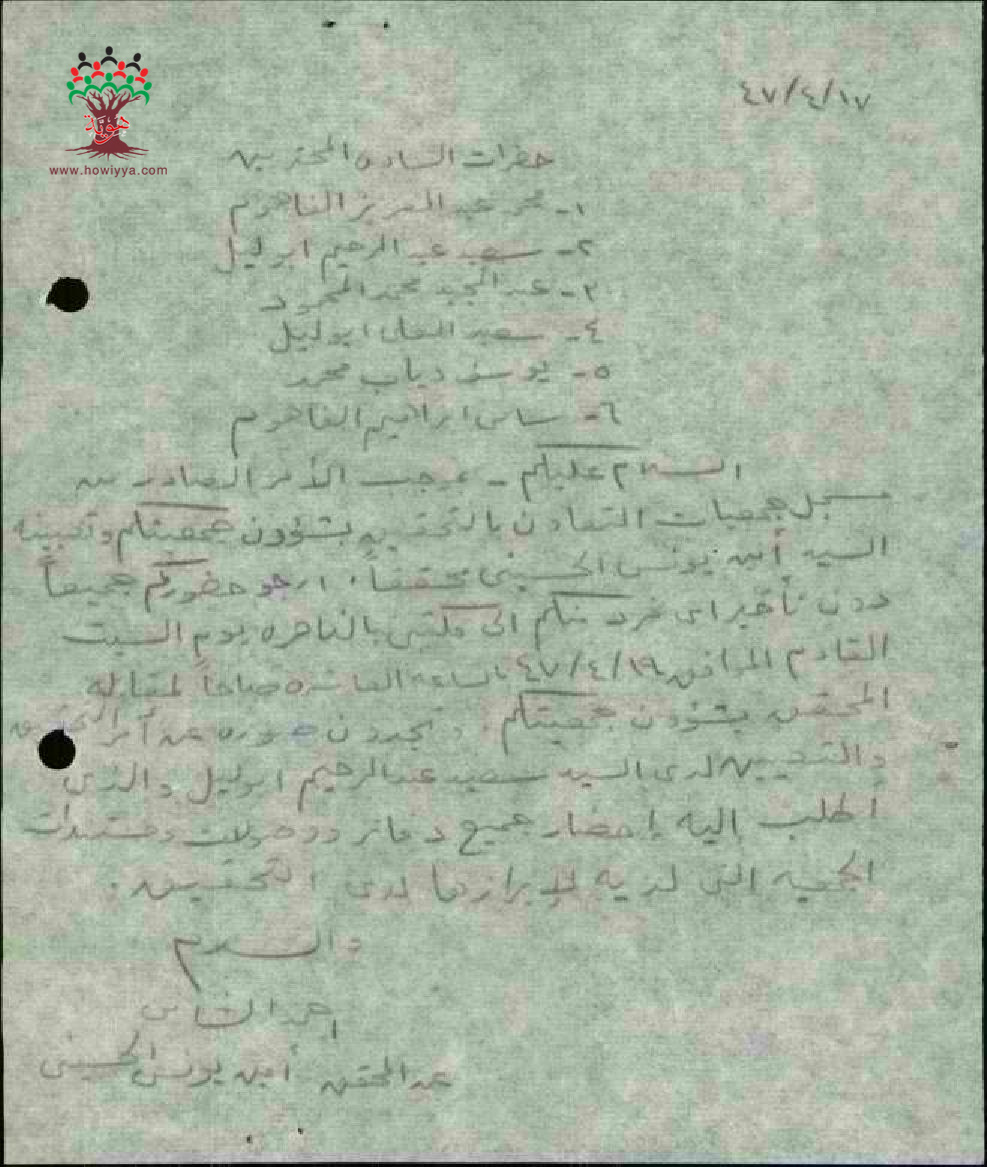 هوية
www.howiyya.com
٤٧/٤/١٧
حضرات السادة المحترمين
١- محمد عبد العزيز الفاهوم
٢- سعيد عبد الرحيم ابو ليل
٣- عبد المجيد محمد المحمود
٤- سعيد العلي ابو ليل
٥- يوسف دياب محمد
٦- سامي ابراهيم الفاهوم
السلام عليكم - بموجب الأمر الصادر من
مسجل جمعيات التعاون بالتحقيق بشؤون جمعيتكم وتعيينه
السيد أمين يونس الحسيني محققاً، ارجو حضوركم جميعاً
دون تأخير اي فرد منكم الى مكتبي بالناصره يوم السبت
القادم الموافق ٤٧/٤/١٩ الساعه العاشره صباحاً لمقابلة
المحقق بشؤون جمعيتكم. وتجدون صوره عن أمر التحقيق
والتعيين لدى السيد سعيد عبد الرحيم ابو ليل والذي
اطلب إليه إحضار جميع دفاتر ووصولات ومستندات
الجمعيه التي لديه لإبرازها لدى التحقيق.
والسلام
احمد
عن المحقق أمين يونس الحسيني